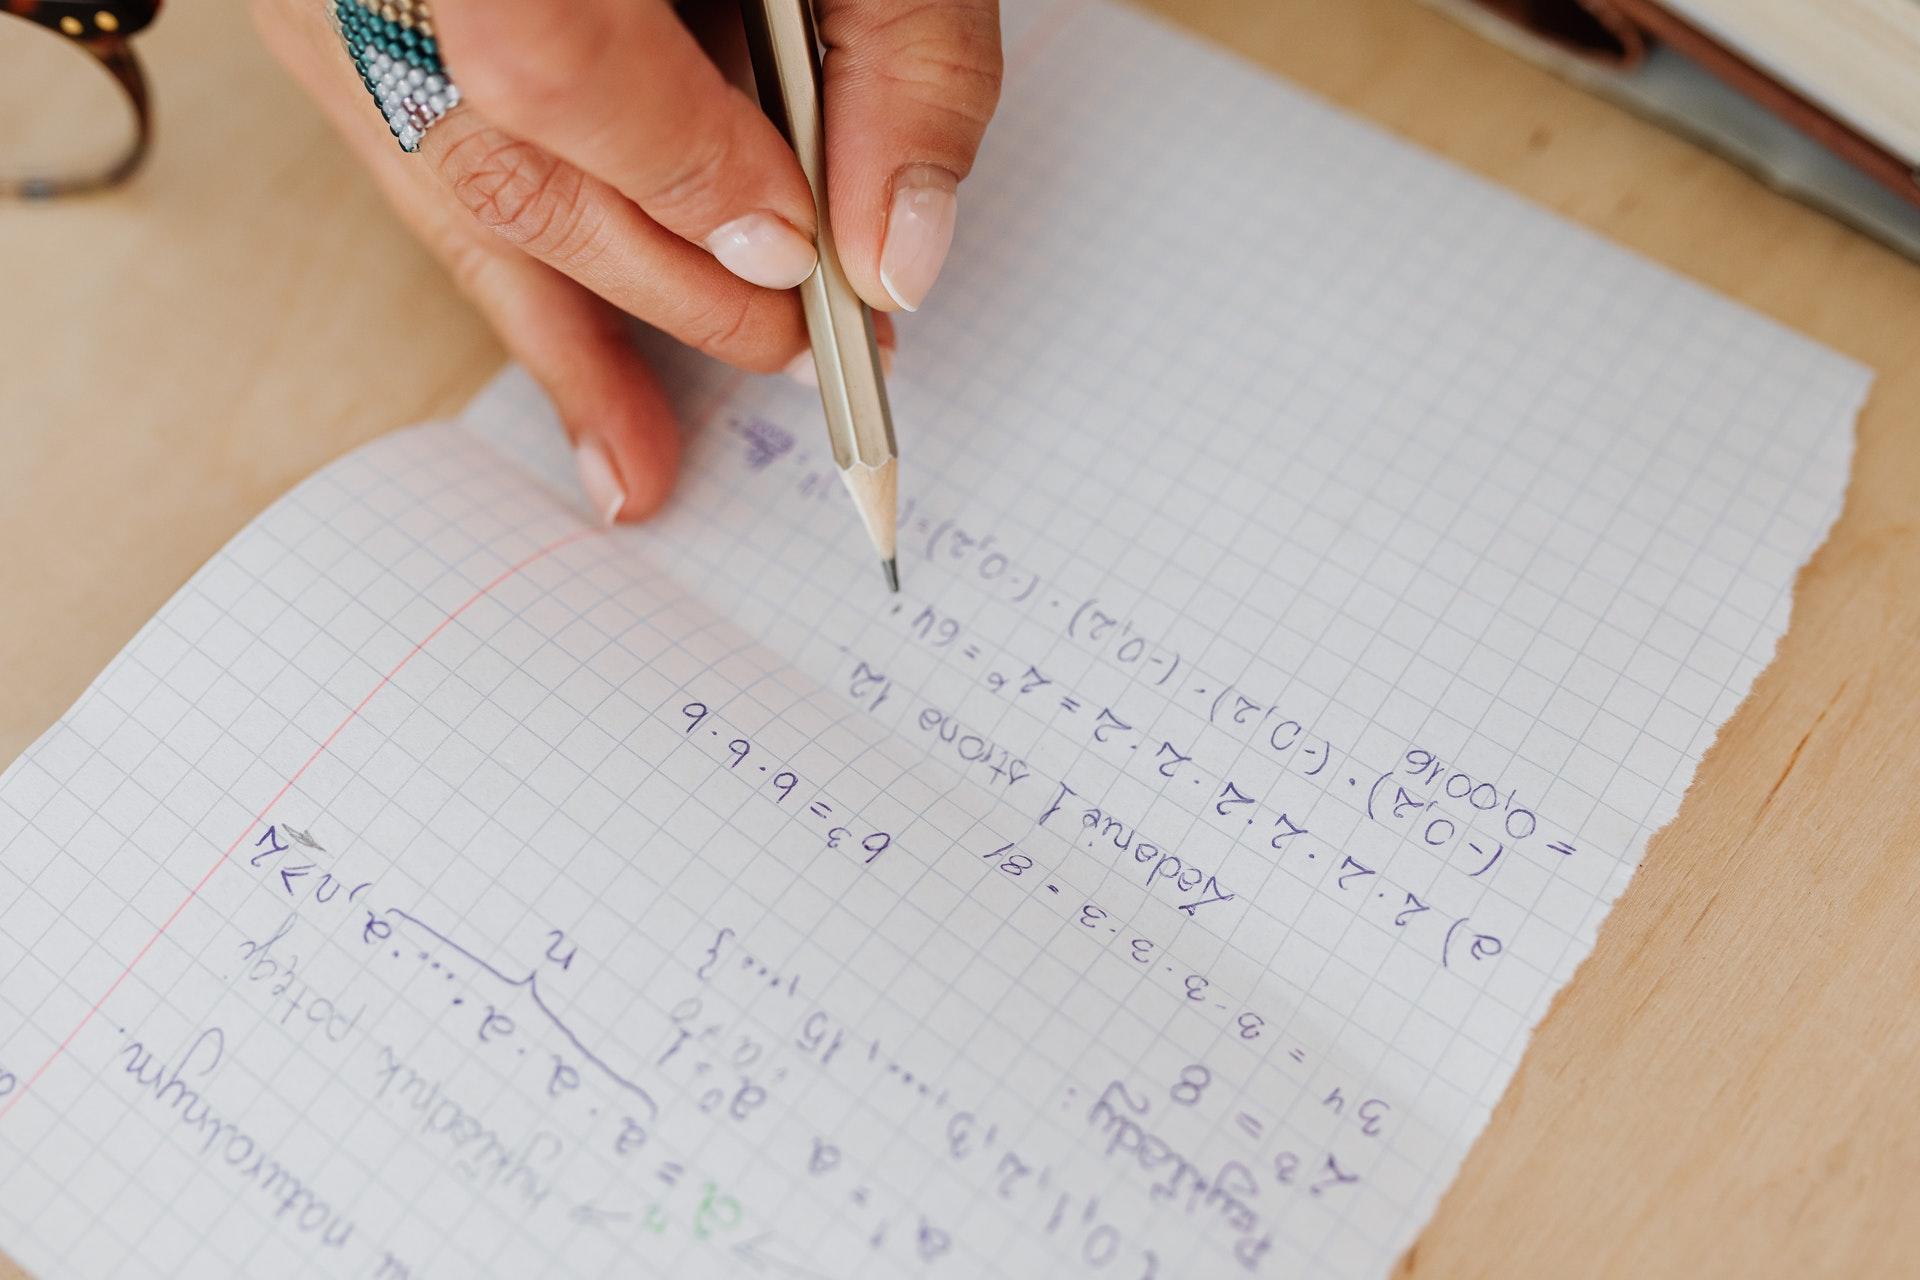 naturalnym.
wykładnik potęgi
aⁿ = a · a · a · .... · a, n ⩾ 2
n
a¹ = a a⁰ = 1, a > 0
{0, 1, 2, 3, ..., 15, ...}
Przykłady:
2³ = 8
3⁴ = 3 · 3 · 3 · 3 = 81 b³ = b · b · b
Zadanie 1 strona 12
a) 2 · 2 · 2 · 2 · 2 · 2 = 2⁶ = 64
(-0,2) · (-0,2) · (-0,2) · (-0,2) =
= 0,0016